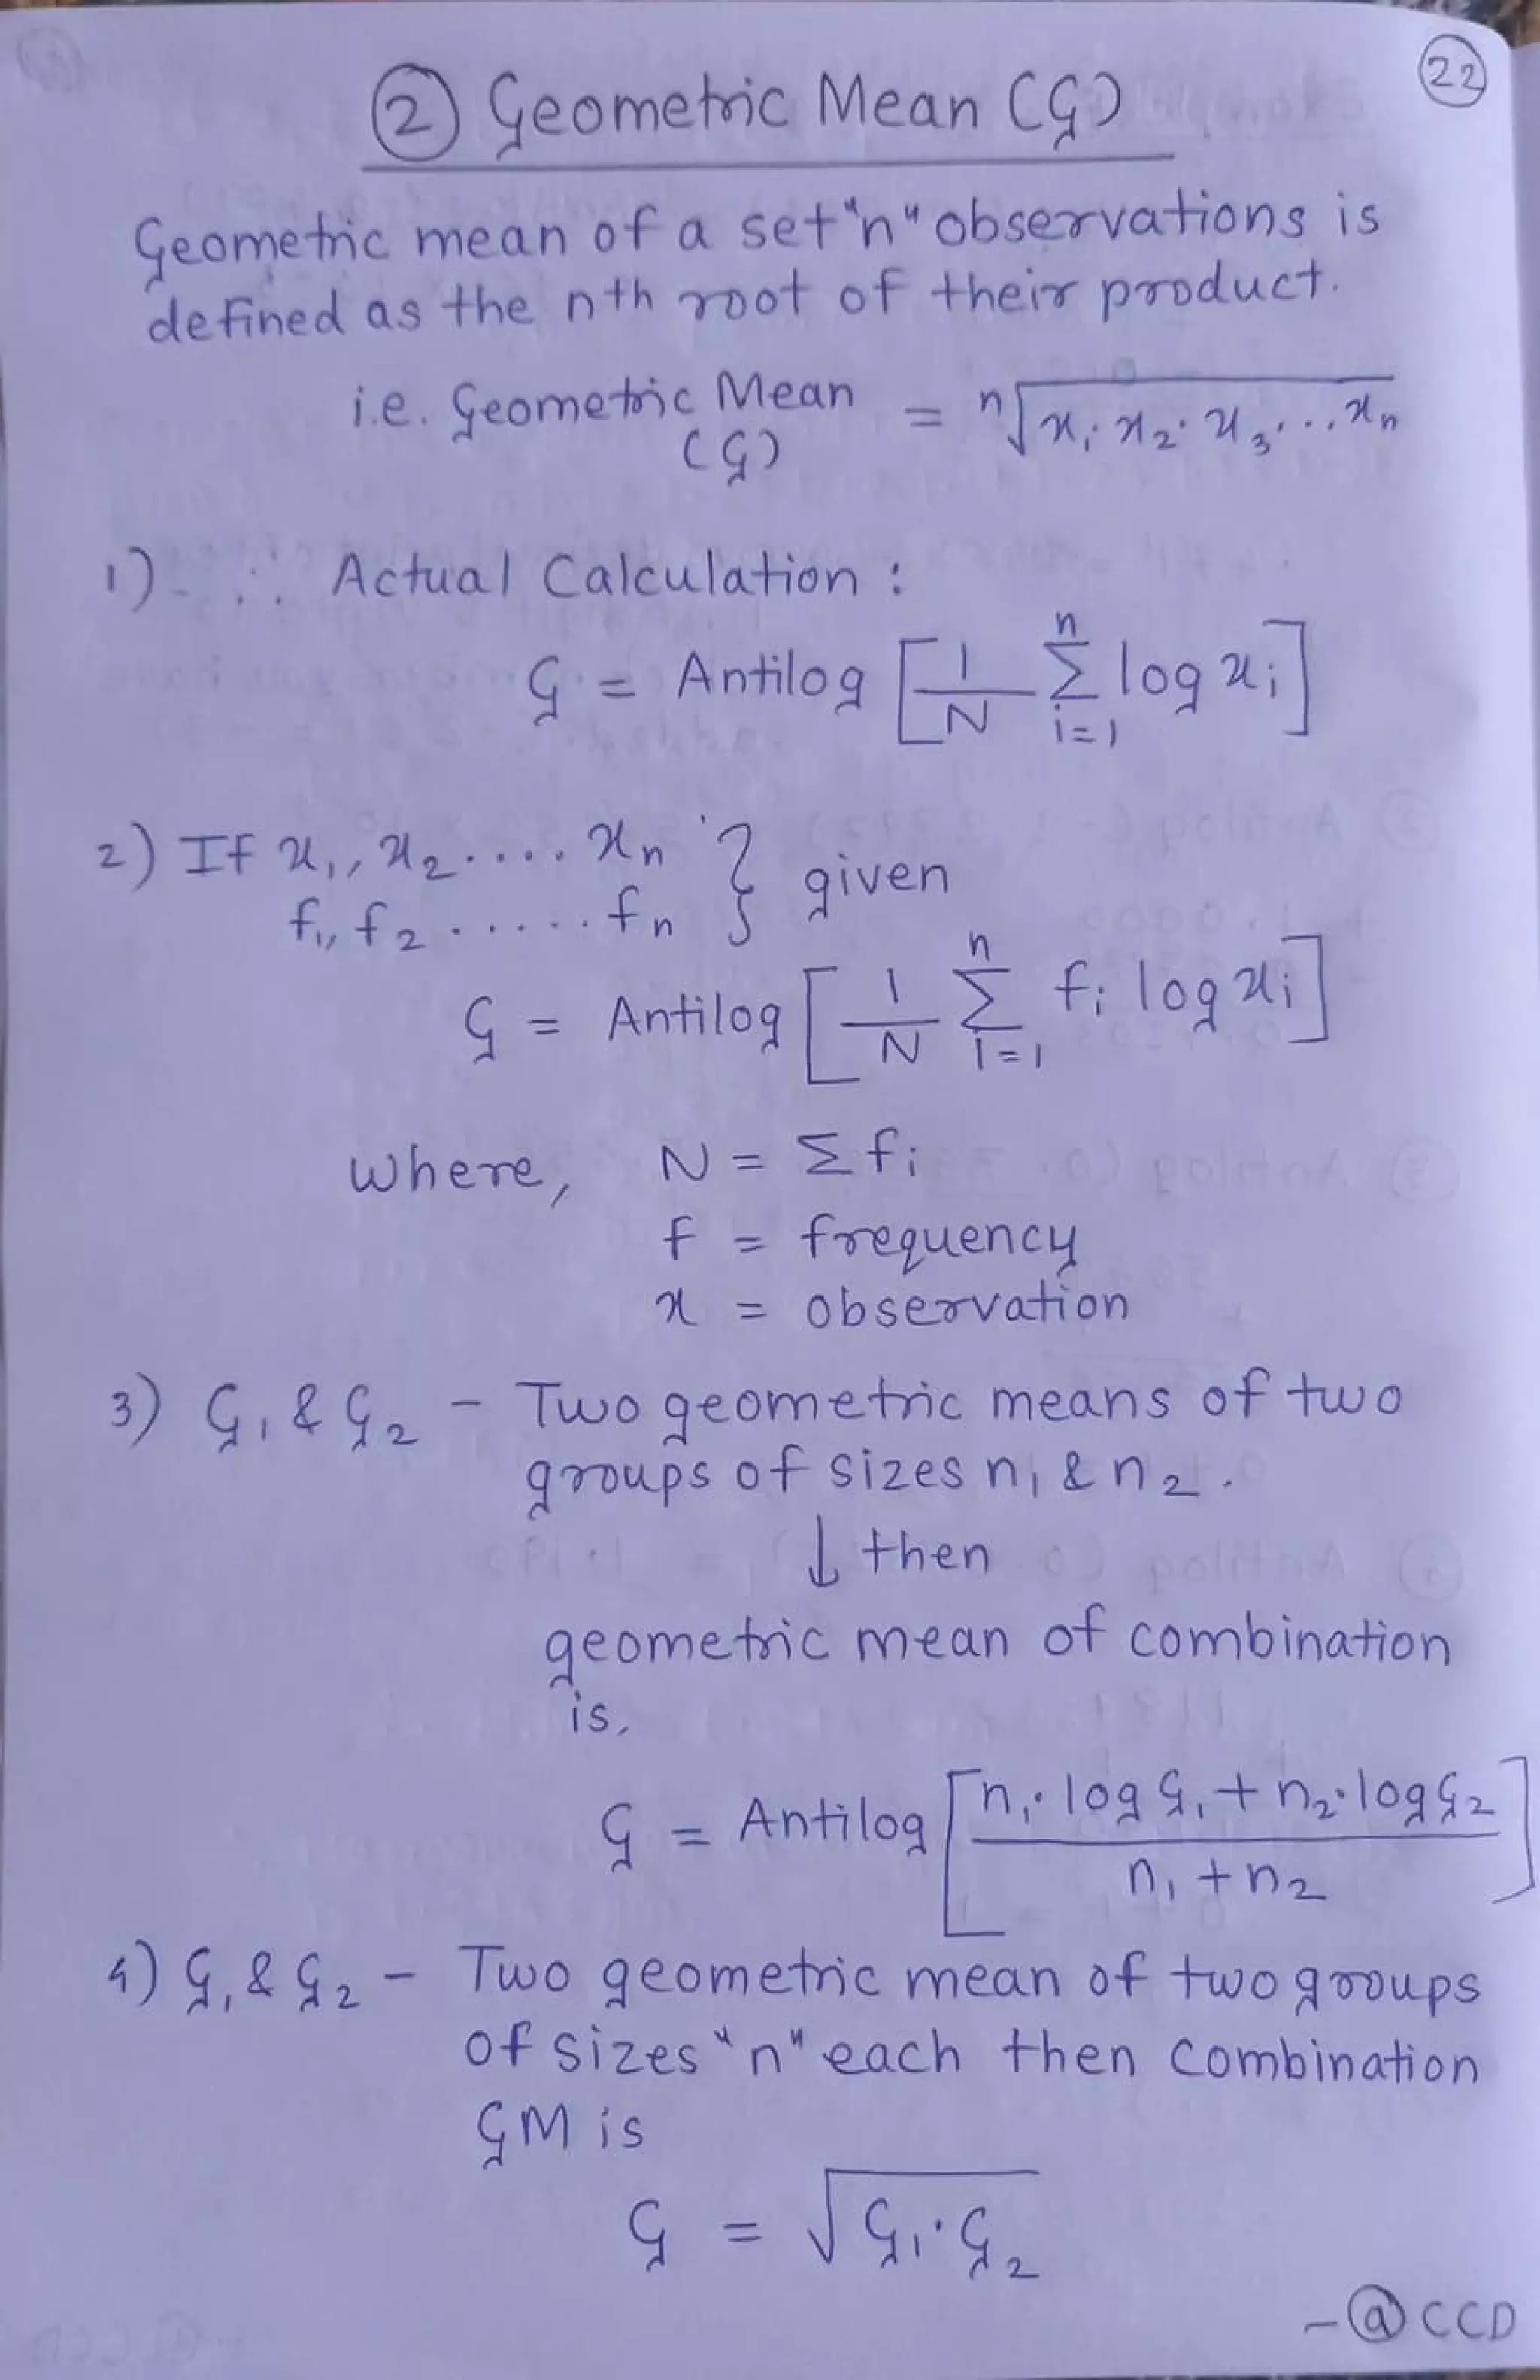 22
② Geometric Mean (G)
Geometric mean of a set "n" observations is
defined as the nth root of their product.
i.e. Geometric Mean = ⁿ√x₁·x₂·x₃....xₙ
(G)
1) ∴ Actual Calculation :
G = Antilog [1/N Σ_{i=1}^{n} log xᵢ]
2) If x₁, x₂ .... xₙ } given
f₁, f₂ ...... fₙ
G = Antilog [1/N Σ_{i=1}^{n} fᵢ log xᵢ]
where, N = Σfᵢ
f = frequency
x = observation
3) G₁ & G₂ - Two geometric means of two
groups of sizes n₁ & n₂.
↓ then
geometric mean of combination
is,
G = Antilog [n₁·log G₁ + n₂·log G₂ / n₁ + n₂]
4) G₁ & G₂ - Two geometric mean of two groups
of sizes "n" each then combination
GM is
G = √G₁·G₂
-@CCD